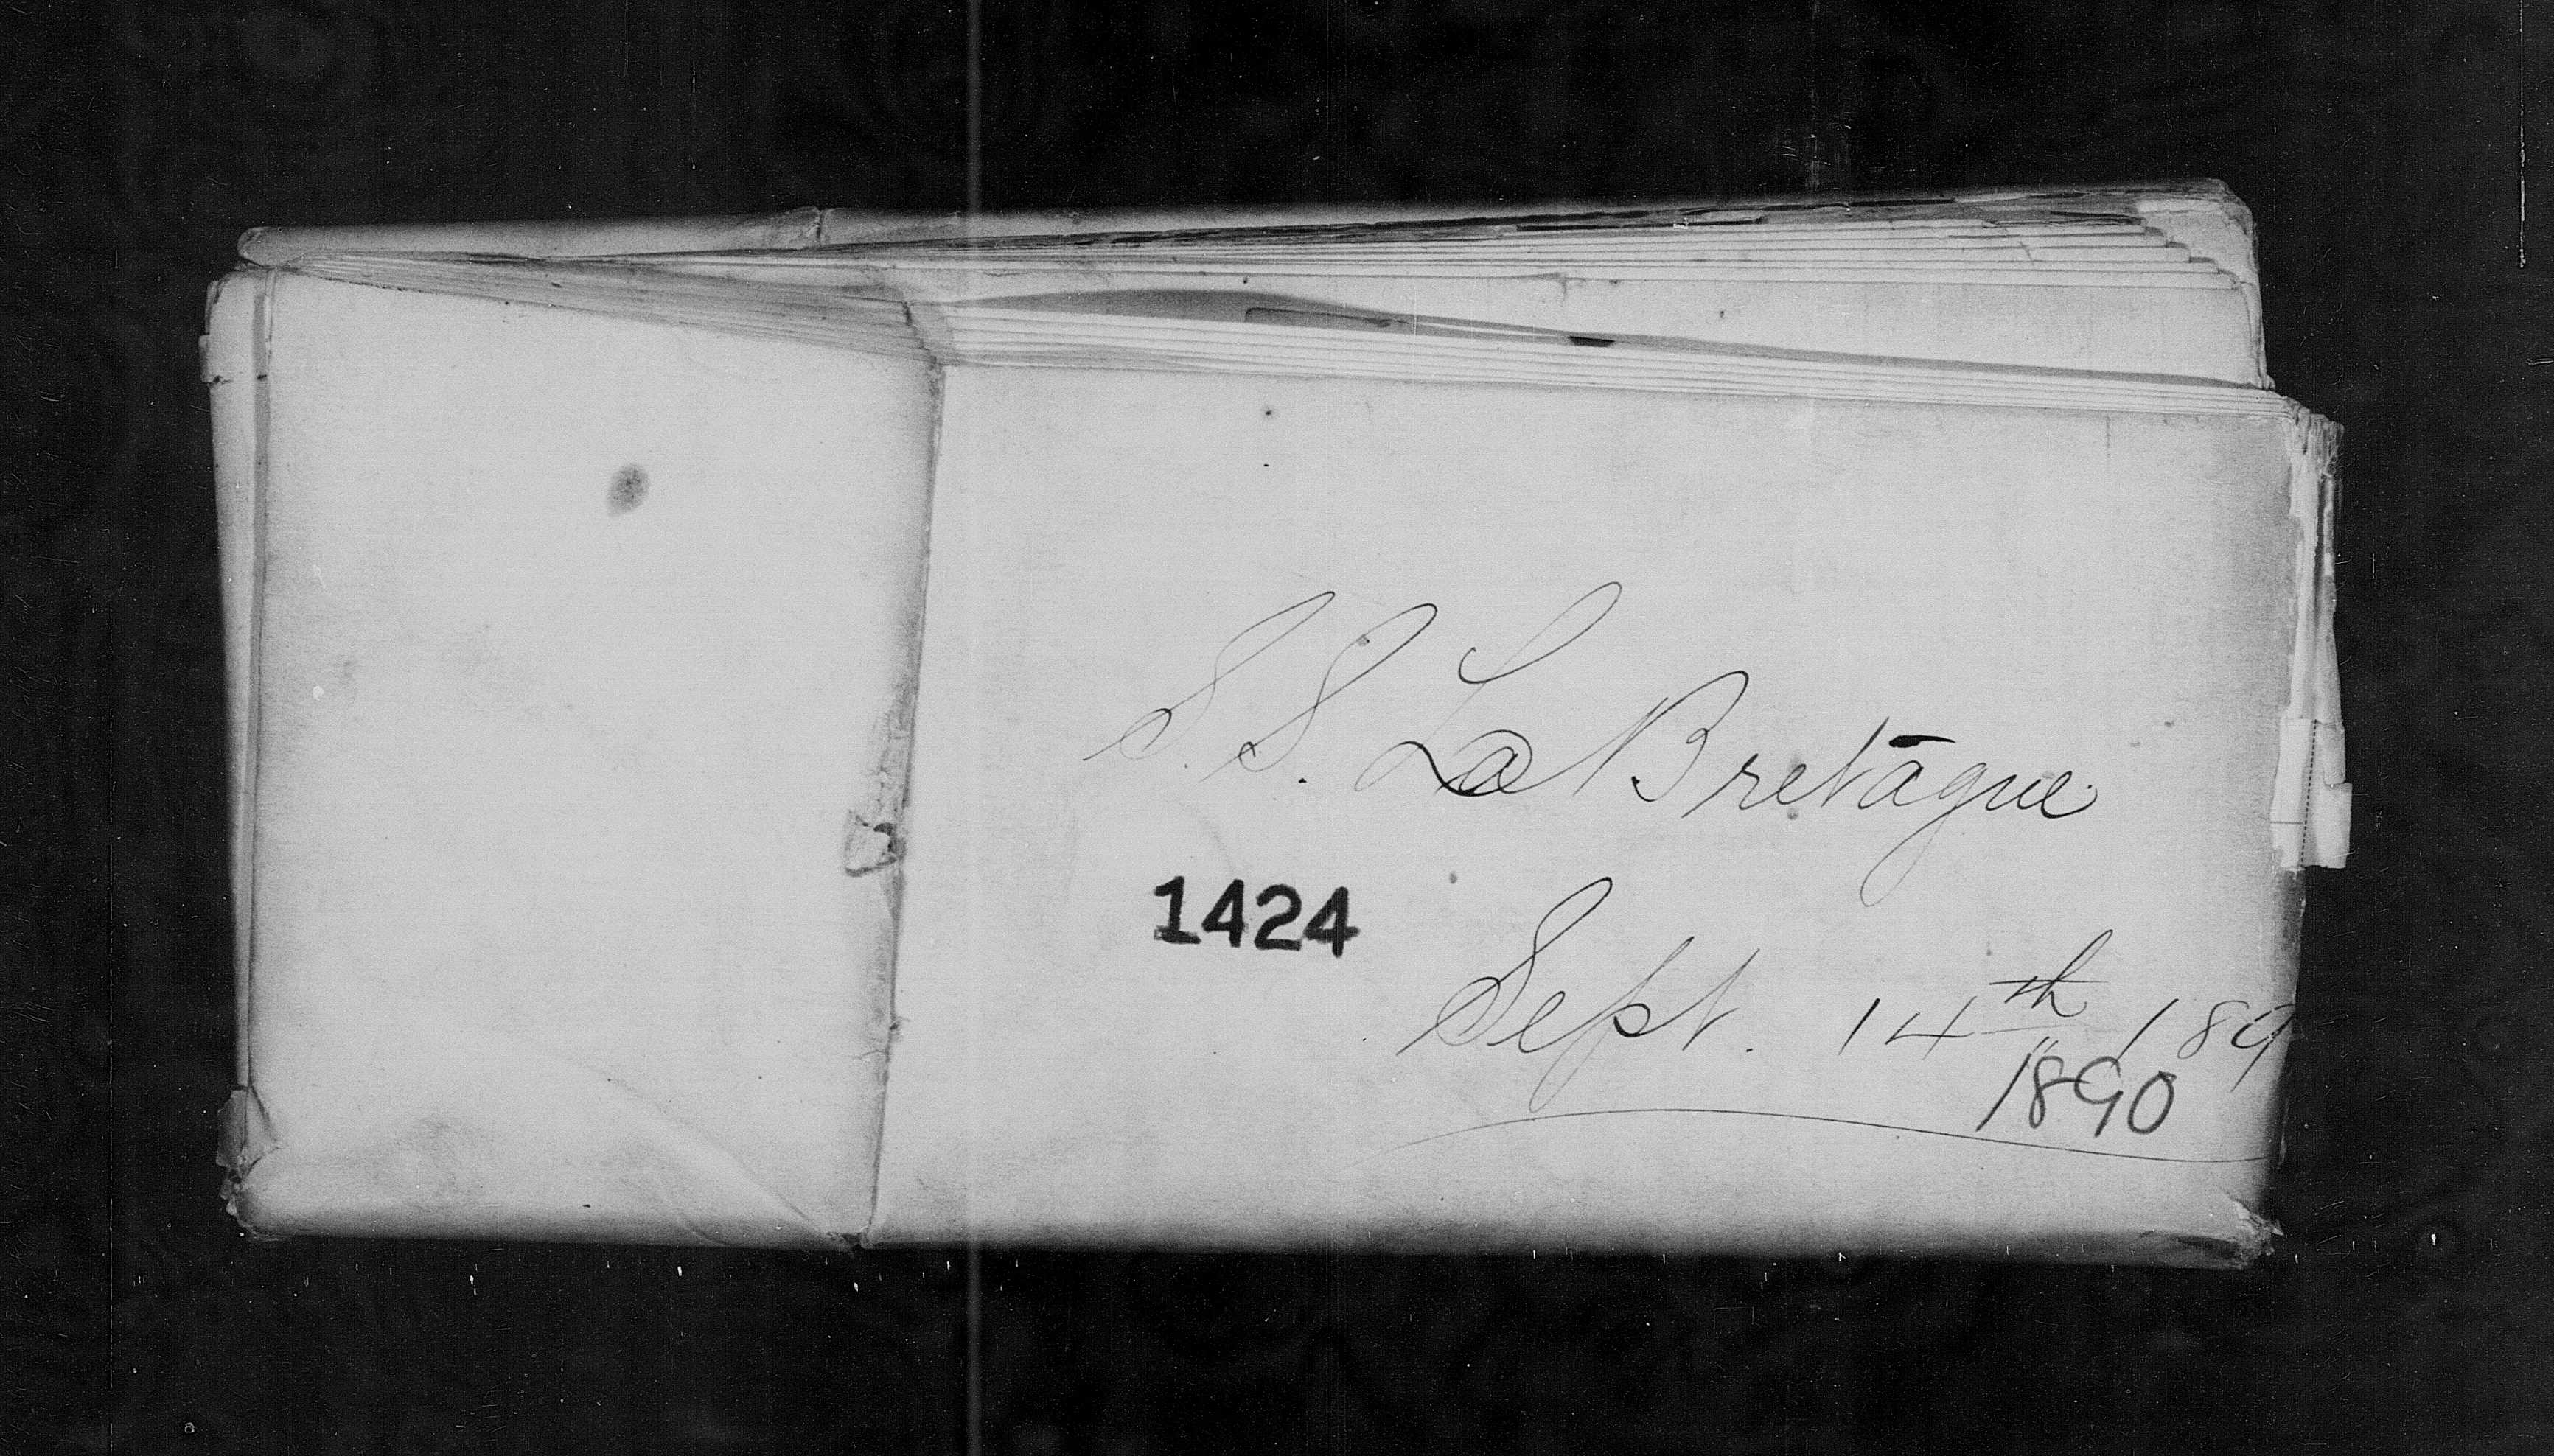 S.S. La Bretagne
1424
Sept. 14th 189
1890